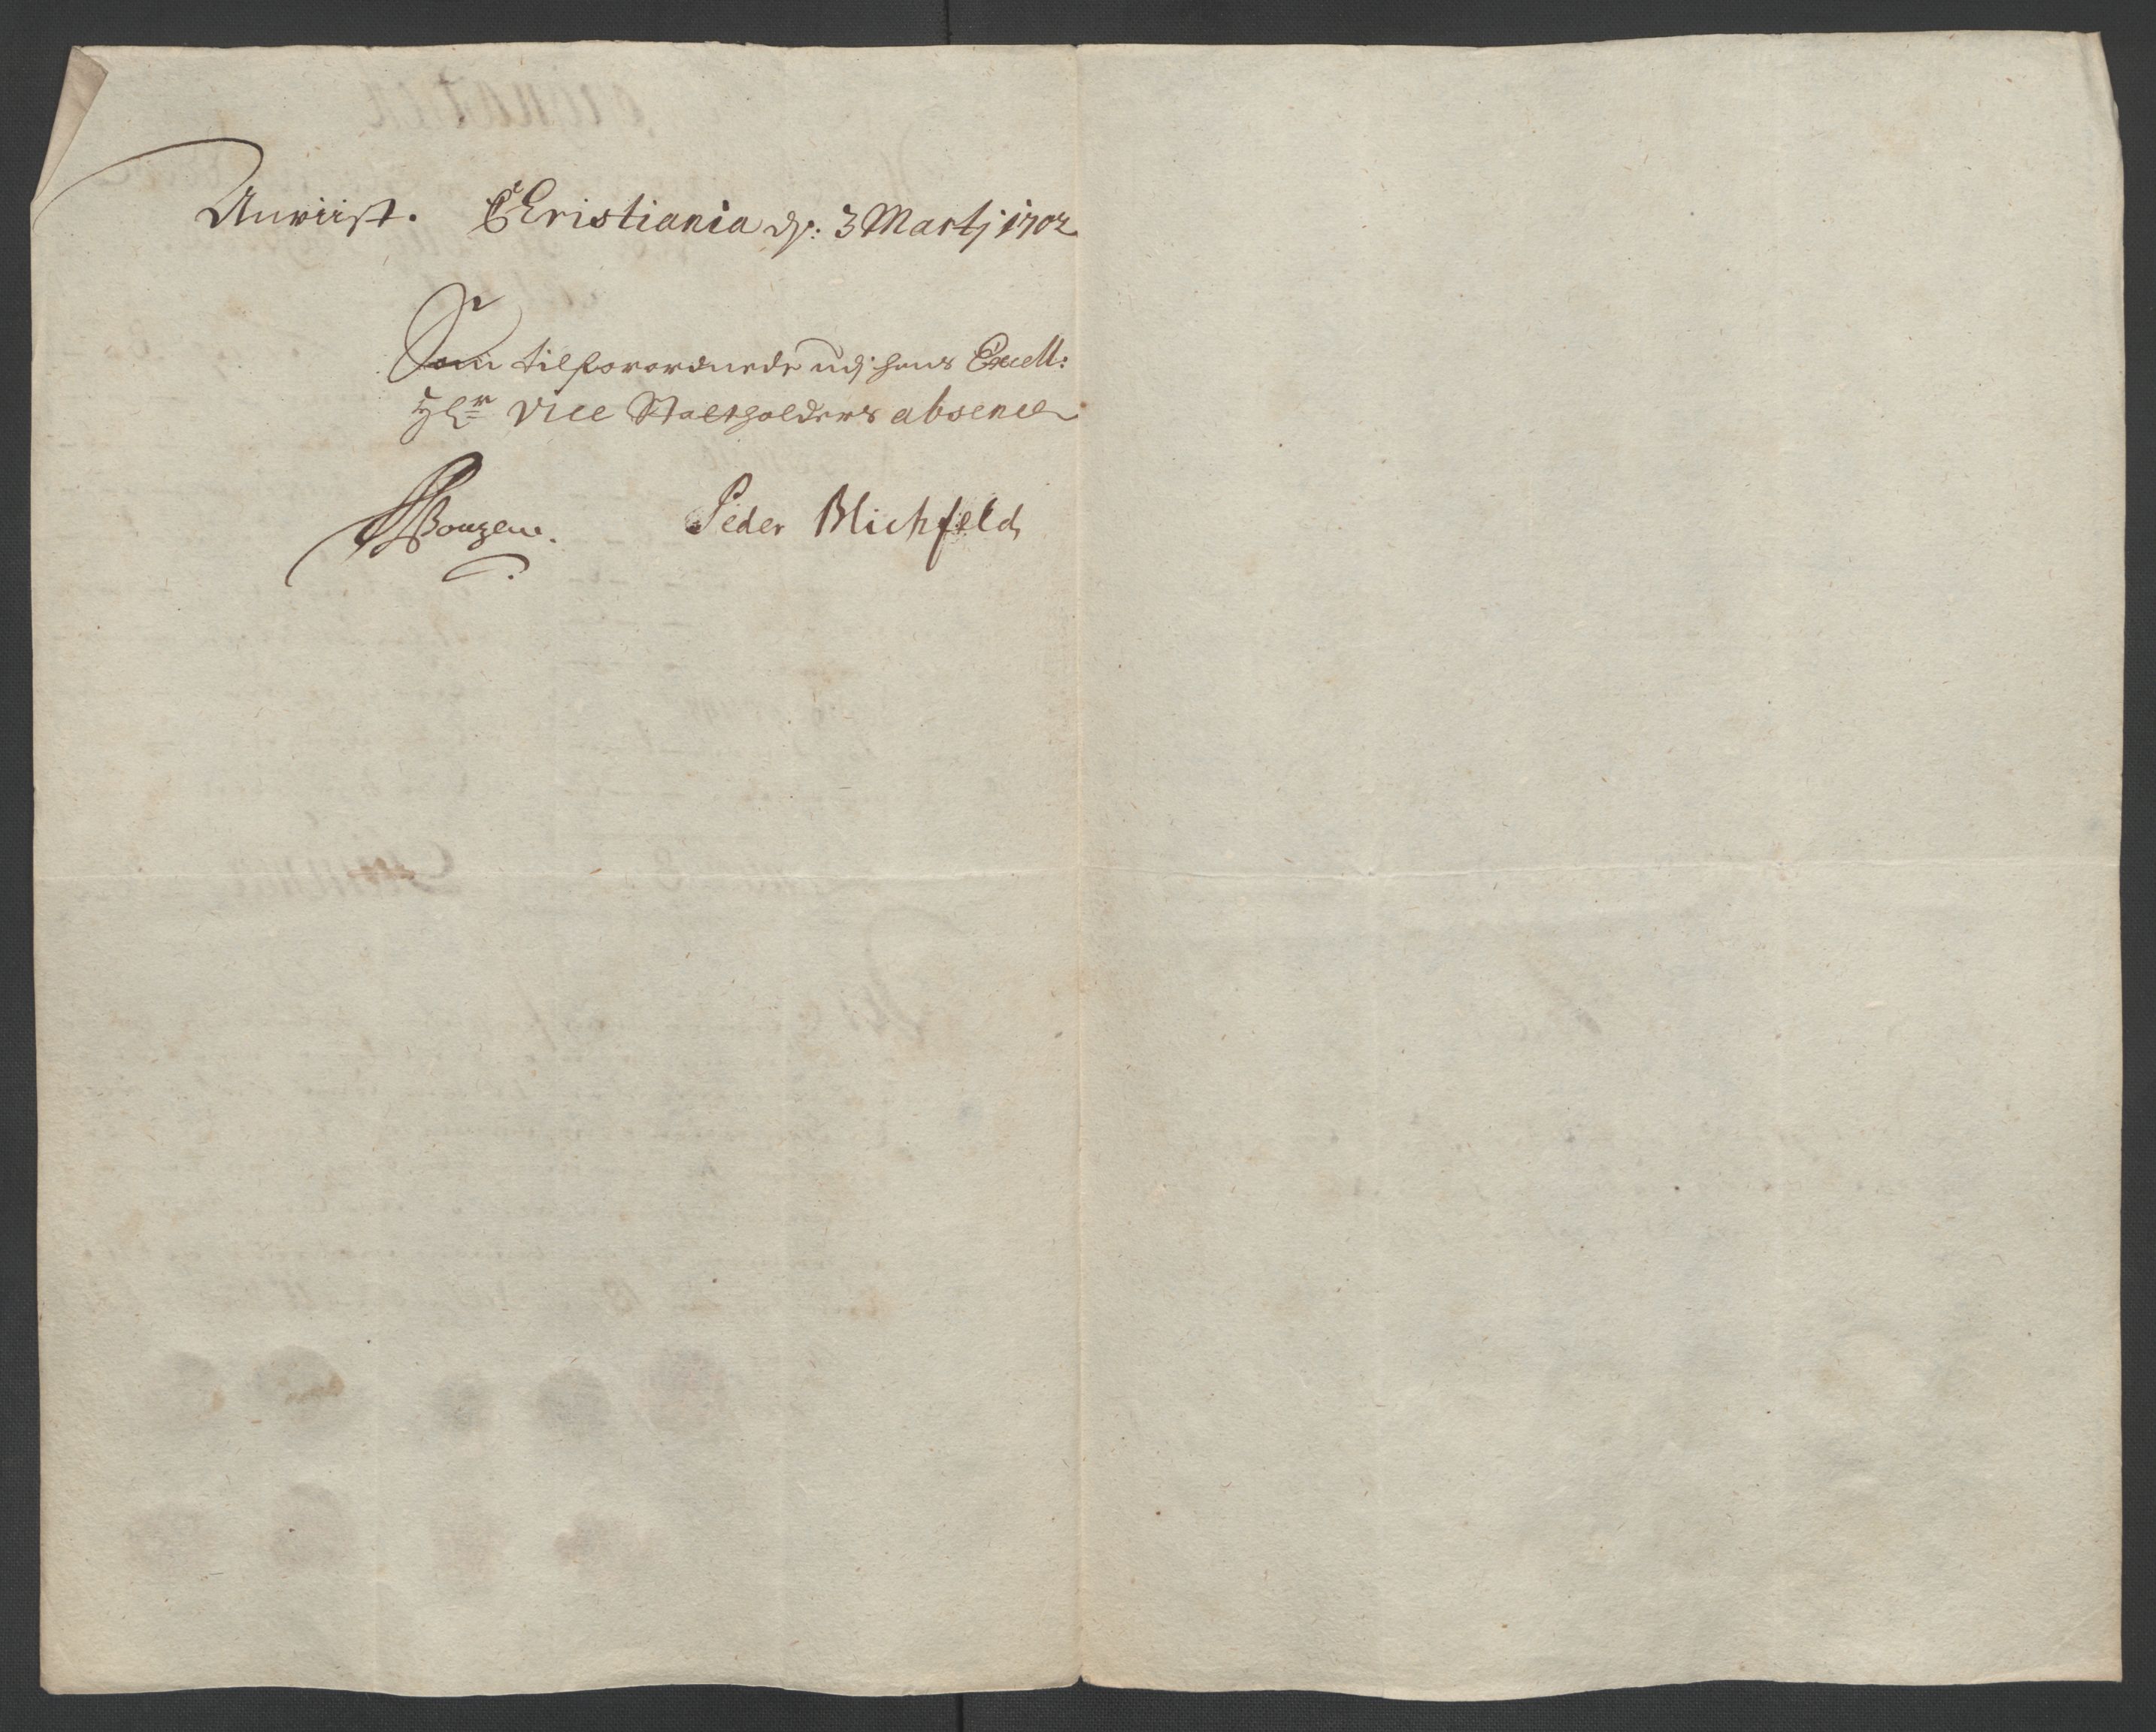 Anviist. Christiania dh: 3 Martj 1702
Som tilforordnede udj hans Excell:
Hr Vice Statholders absence
Peder Blichfeld